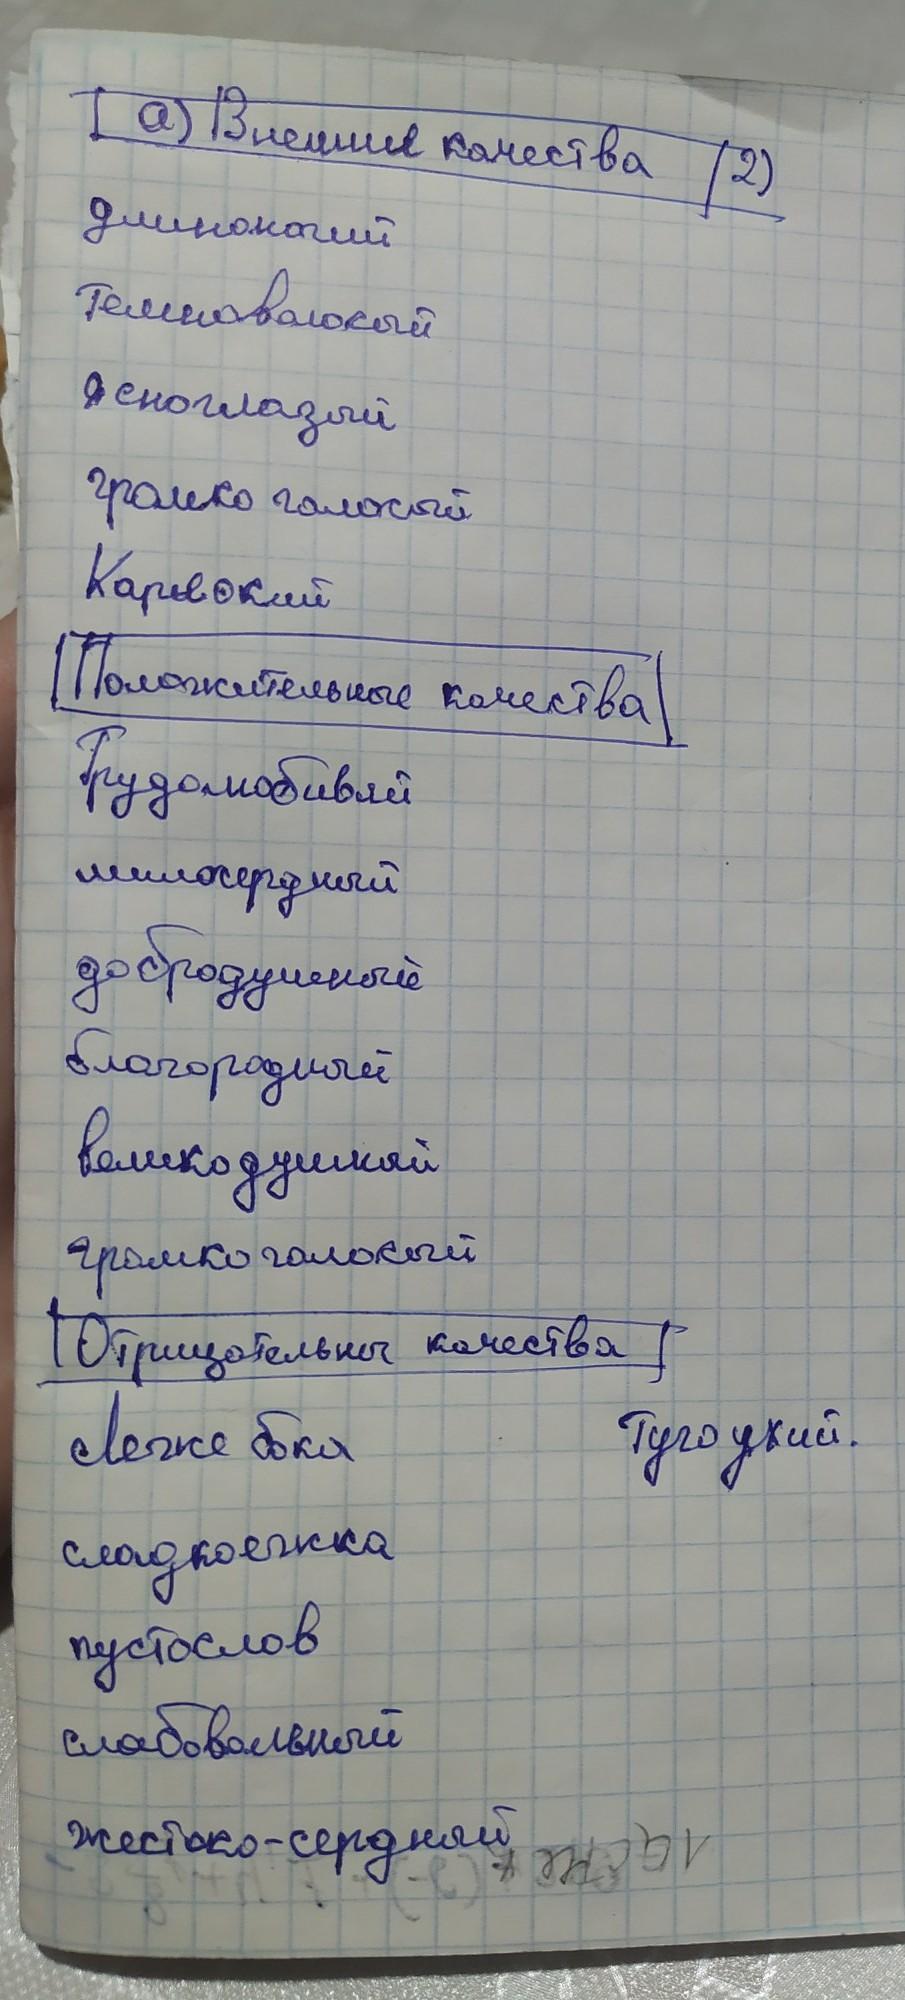 а) Внешние качества (2)
длиноногий
Темноволосый
ясноглазый
громко голосый
Положительные качества
Трудолюбивый
милосердный
добродушный
благородный
великодушный
громкоголосый
Отрицательные качества
Лежебока
Тугоухий.
сладкоежка
пустослов
слабовольный
жестоко-сердный